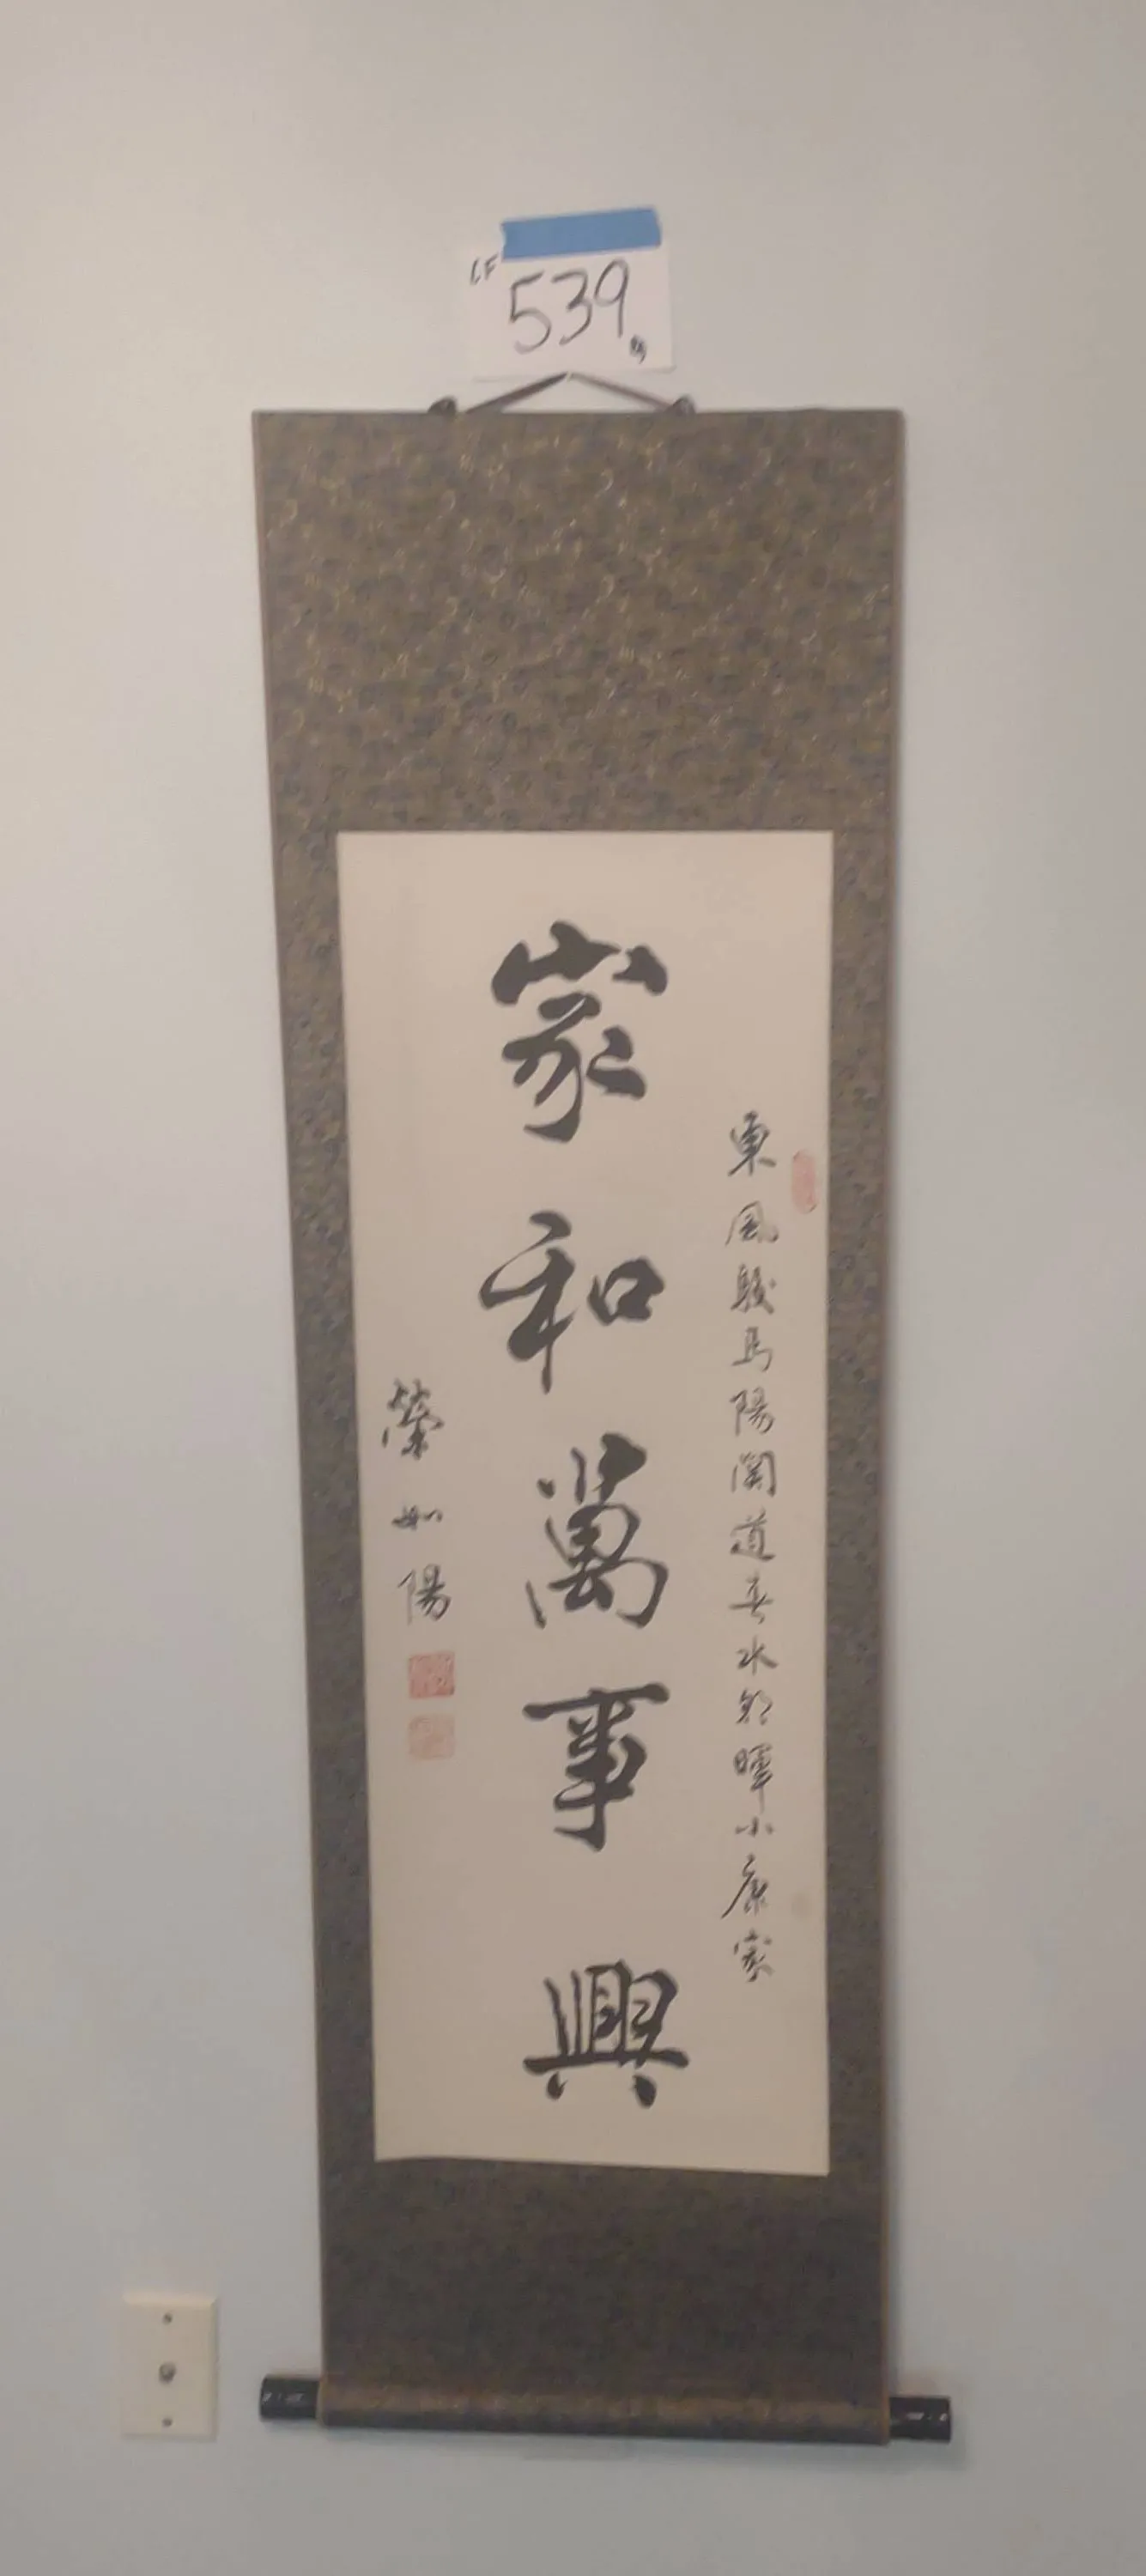 LF
539
東風駿馬陽関道春水朝暉小康家
家和萬事興
榮如陽